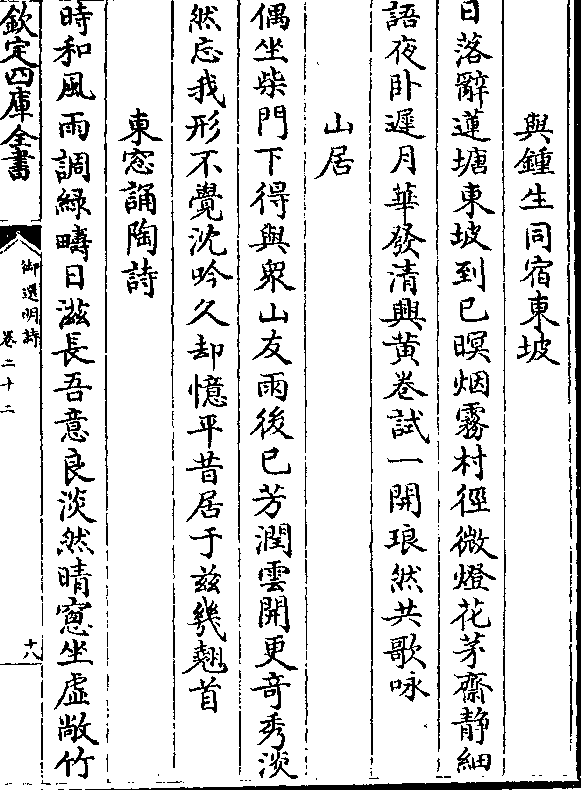 與鍾生同宿東坡
日落辭蓮塘東坡到已暝烟霧村徑微燈花茅齋静細
語夜卧遲月華發清興黄卷試一開琅然共歌咏
山居
偶坐柴門下得與衆山友雨後已芳潤雲開更竒秀淡
然忘我形不覺沈吟久却憶平昔居于兹幾翹首
東窓誦陶詩
時和風雨調緑疇日滋長吾意良淡然晴窻坐虚敞竹
欽定四庫全書
御選明詩
卷二十二
十八